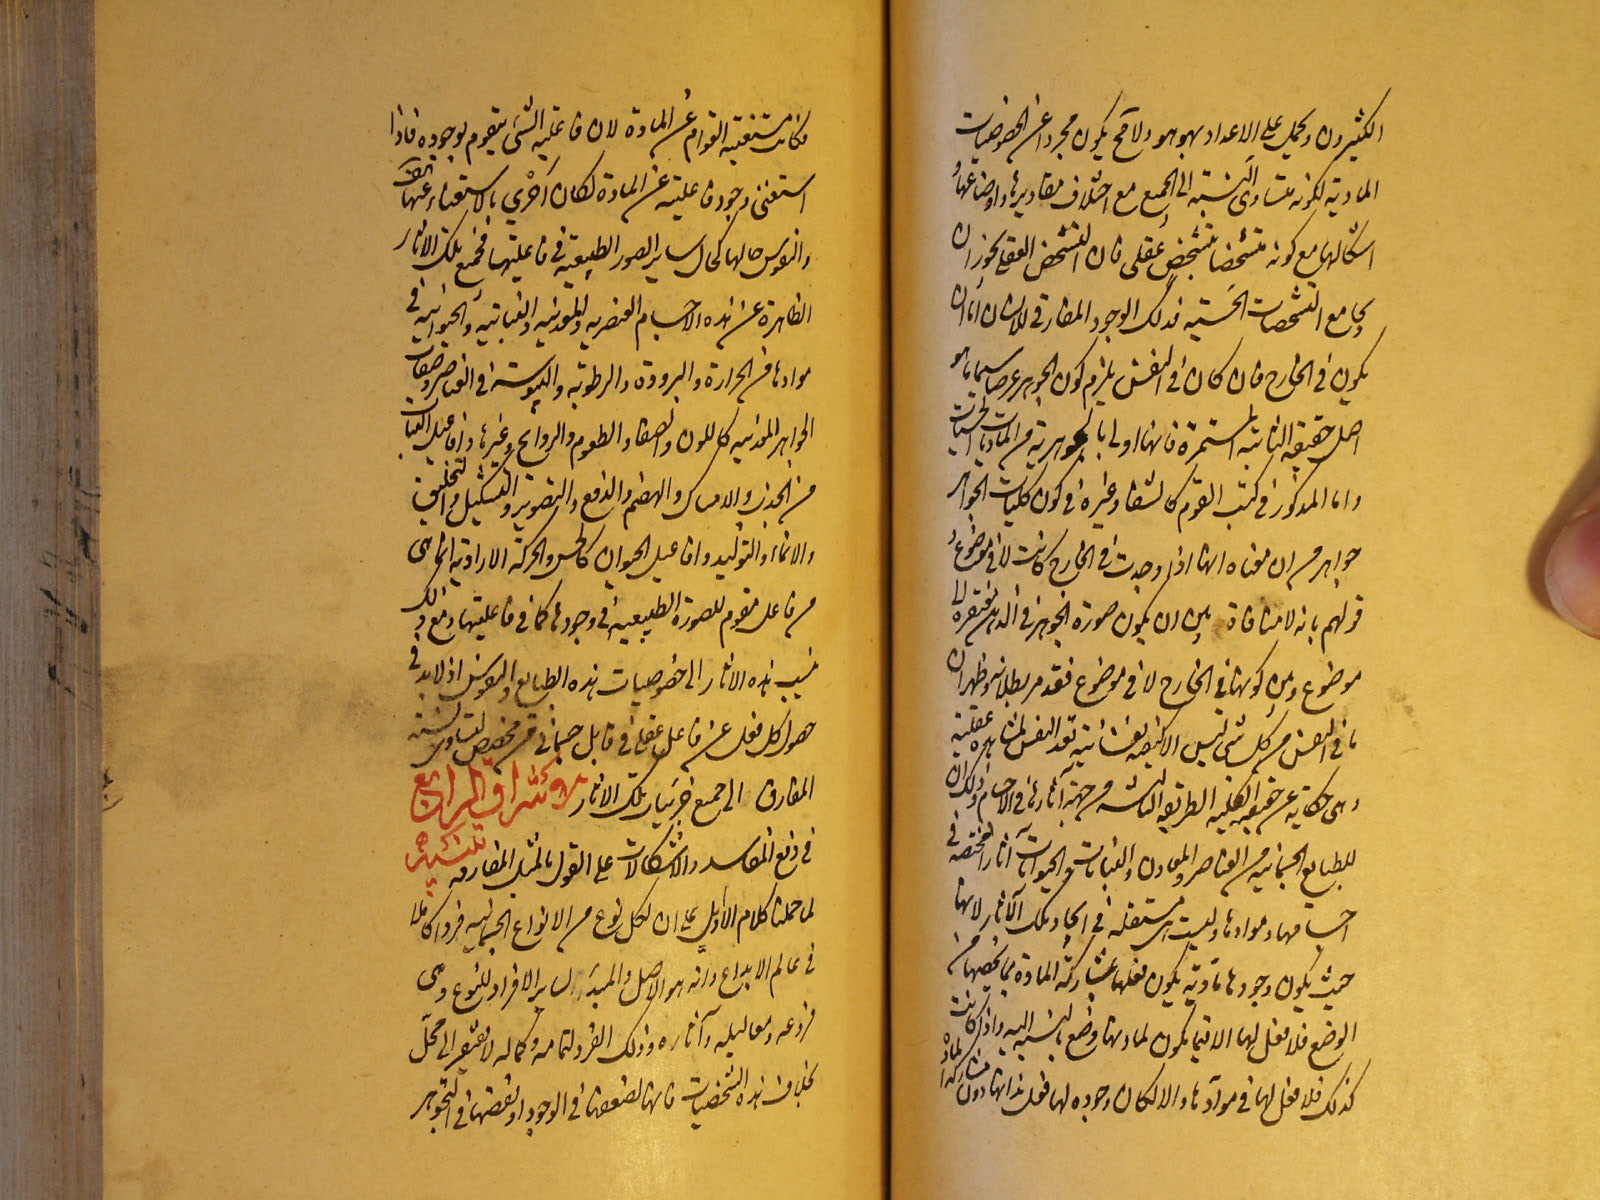 الكثيرون ويحمل على الاعداد بهو هو ولا مح يكون مجردا عن الخصوصيات
المادية لكونه متساوى النسبة الى الجميع مع اختلاف مقاديرها واوضاعها و
اشكالها مع كونه متشخصا بتشخص عقلى فان التشخص العقلى يجوز ان
يجامع التشخصات الحسية فذلك الوجود المفارقى للانسان اما ان
يكون فى الخارج فان كان فى النفس يلزم كون الجوهر عرضا سيما ما هو
اصل حقيقة الثابتة المستمرة فانها اولى بالجوهرية من الماديات الحسيات
واما المذكور فى كتب القوم كالشفا وغيره فى كون كليات الجواهر
جواهر من ان معناه انها اذا وجدت فى الخارج كانت لا فى موضوع و
قولهم بانه لا منافاة بين ان يكون صورة الجوهر فى الذهن مفتقرة الى
موضوع وبين كونها فى الخارج لا فى موضوع فقد مر بطلانه وظهر ان
ما فى النفس من كل شى ليس الا كيفية نفسانية تعد النفس لمشاهدة عقلية
وهى حكاية عن حقيقة الكلية الطريقة الثالثة من جهة آثارها فى الاجسام وذلك ان
للطبايع الجسمانية من العناصر والمعادن والنباتات والحيوانات آثارا مختصة فى
اجسامها وموادها وليست هى مستقلة فى ايجاد تلك الآثار لانها
حيث يكون وجودها مادية يكون فعلها بمشاركة المادة بما يخصها من
الوضع فلا فعل لها الا فيما يكون لمادتها وضع بالنسبة اليه واذا كانت
كذلك فلا فعل لها فى موادها والا لكان وجوده لها فعل بذاتها دون مشاركة المادة
فكانت مستغنية القوام عن المادة لان فاعلية الشى يتقوم بوجوده فاذا
استغنى وجود فاعلية عن المادة لكان احرى بالاستغناء عنها
والنفوس حالها كحال ساير الصور الطبيعية فى فاعليتها فجميع تلك الاثار
الظاهرة عن هذه الاجسام العنصرية والمعدنية والنباتية والحيوانية فى
موادها من الحرارة والبرودة والرطوبة واليبوسة فى العناصر وصفات
الجواهر المعدنية كاللون والصفا والطعوم والروايح وغيرها وافاعيل النبات
من الجذب والامساك والهضم والدفع والتصوير والتشكيل والتخليق
والانماء والتوليد وافاعيل الحيوان كالحس والحركة الارادية انما هى
من فاعل مقوم للصورة الطبيعية فى وجودها كما فى فاعليتها ومع ذلك
ينسب هذه الاثار الى خصوصيات هذه الطبايع والنفوس اذ لابد فى
حصول كل فعل عن فاعل عقلى فى قابل جسمانى من مخصص لتساوى نسبة
المفارق الى جميع جزئيات تلك الاثار الاشراق الرابع
فى دفع المفاسد والاشكالات على القول بالمثل المفارقة
لما حملنا كلام الأوايل على ان لكل نوع من الانواع الجسمانية فردا كاملا
فى عالم الابداع وانه هو الاصل والمبدء وساير الافراد للنوع وهى
فروعه ومعاليله وآثاره وذلك الفرد لتمامه وكماله لا يفتقر الى محل
بخلاف هذه الشخصيات فانها لضعفها فى الوجود او نقصها فى التجوهر